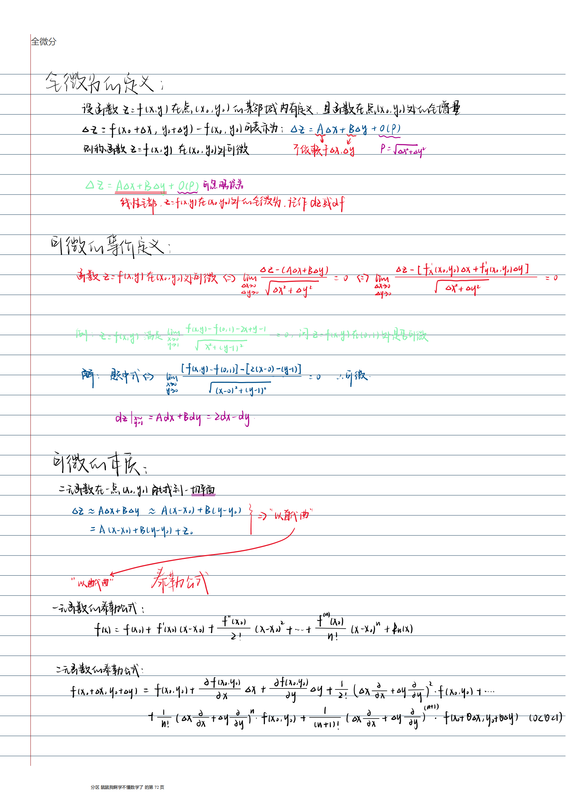 全微分
全微分的定义:
设函数 z=f(x,y) 在点(x₀,y₀)的某邻域内有定义,且函数在点(x₀,y₀)处的全增量
Δz=f(x₀+Δx,y₀+Δy)-f(x₀,y₀)可表示为: Δz=AΔx+BΔy+o(ρ)
则称函数 z=f(x,y) 在(x₀,y₀)处可微 不依赖于Δx,Δy ρ=√(Δx²+Δy²)
Δz=AΔx+BΔy+o(ρ)
线性主部, z=f(x,y)在(x₀,y₀)处的全微分,记作 dz或df
可微的等价定义:
函数 z=f(x,y)在(x₀,y₀)处可微 ⇔ lim(Δx→0,Δy→0) [Δz-(AΔx+BΔy)]/√(Δx²+Δy²) =0 ⇔ lim(Δx→0,Δy→0) {Δz-[f'x(x₀,y₀)Δx+f'y(x₀,y₀)Δy]}/√(Δx²+Δy²) =0
例: z=f(x,y) 满足 lim(x→0,y→1) [f(x,y)-f(0,1)-2x+y-1]/√(x²+(y-1)²) =0, 问 z=f(x,y)在(0,1)处是否可微
解: 题中式⇔ lim(x→0,y→1) {[f(x,y)-f(0,1)]-[2(x-0)-(y-1)]}/√((x-0)²+(y-1)²) =0 ∴可微.
dz|(x=0,y=1) =Adx+Bdy=2dx-dy
可微的本质:
二元函数在一点(x₀,y₀)能找到一切平面
Δz≈AΔx+BΔy≈A(x-x₀)+B(y-y₀) ⇒"以直代曲"
=A(x-x₀)+B(y-y₀)+z₀
"以直代曲" 泰勒公式
一元函数的泰勒公式:
f(x)=f(x₀)+f'(x₀)(x-x₀)+f''(x₀)/2! (x-x₀)²+…+f⁽ⁿ⁾(x₀)/n! (x-x₀)ⁿ+Rn(x)
二元函数的泰勒公式:
f(x₀+Δx,y₀+Δy)=f(x₀,y₀)+∂f(x₀,y₀)/∂x Δx+∂f(x₀,y₀)/∂y Δy+1/2! (Δx ∂/∂x+Δy ∂/∂y)²·f(x₀,y₀)+…
+1/n! (Δx ∂/∂x+Δy ∂/∂y)ⁿ·f(x₀,y₀)+1/(n+1)! (Δx ∂/∂x+Δy ∂/∂y)⁽ⁿ⁺¹⁾·f(x₀+θΔx,y₀+θΔy) (0<θ<1)